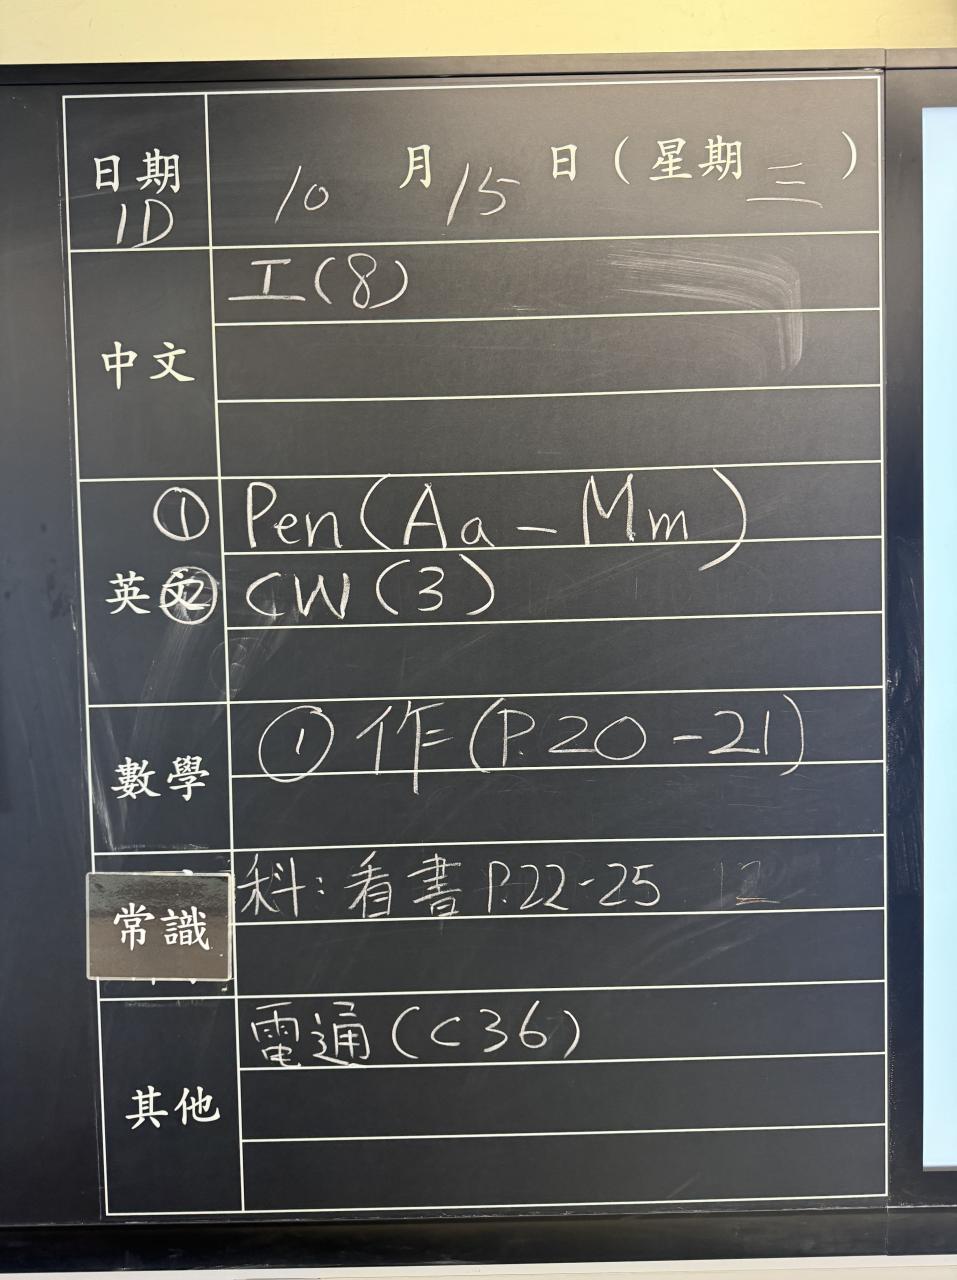 日期 10月15日(星期三)
1D
中文 工(8)
英文 ① Pen(Aa-Mm)
② CW(3)
數學 ①作(P.20-21)
常識 科:看書P.22-25
其他 電通(C36)